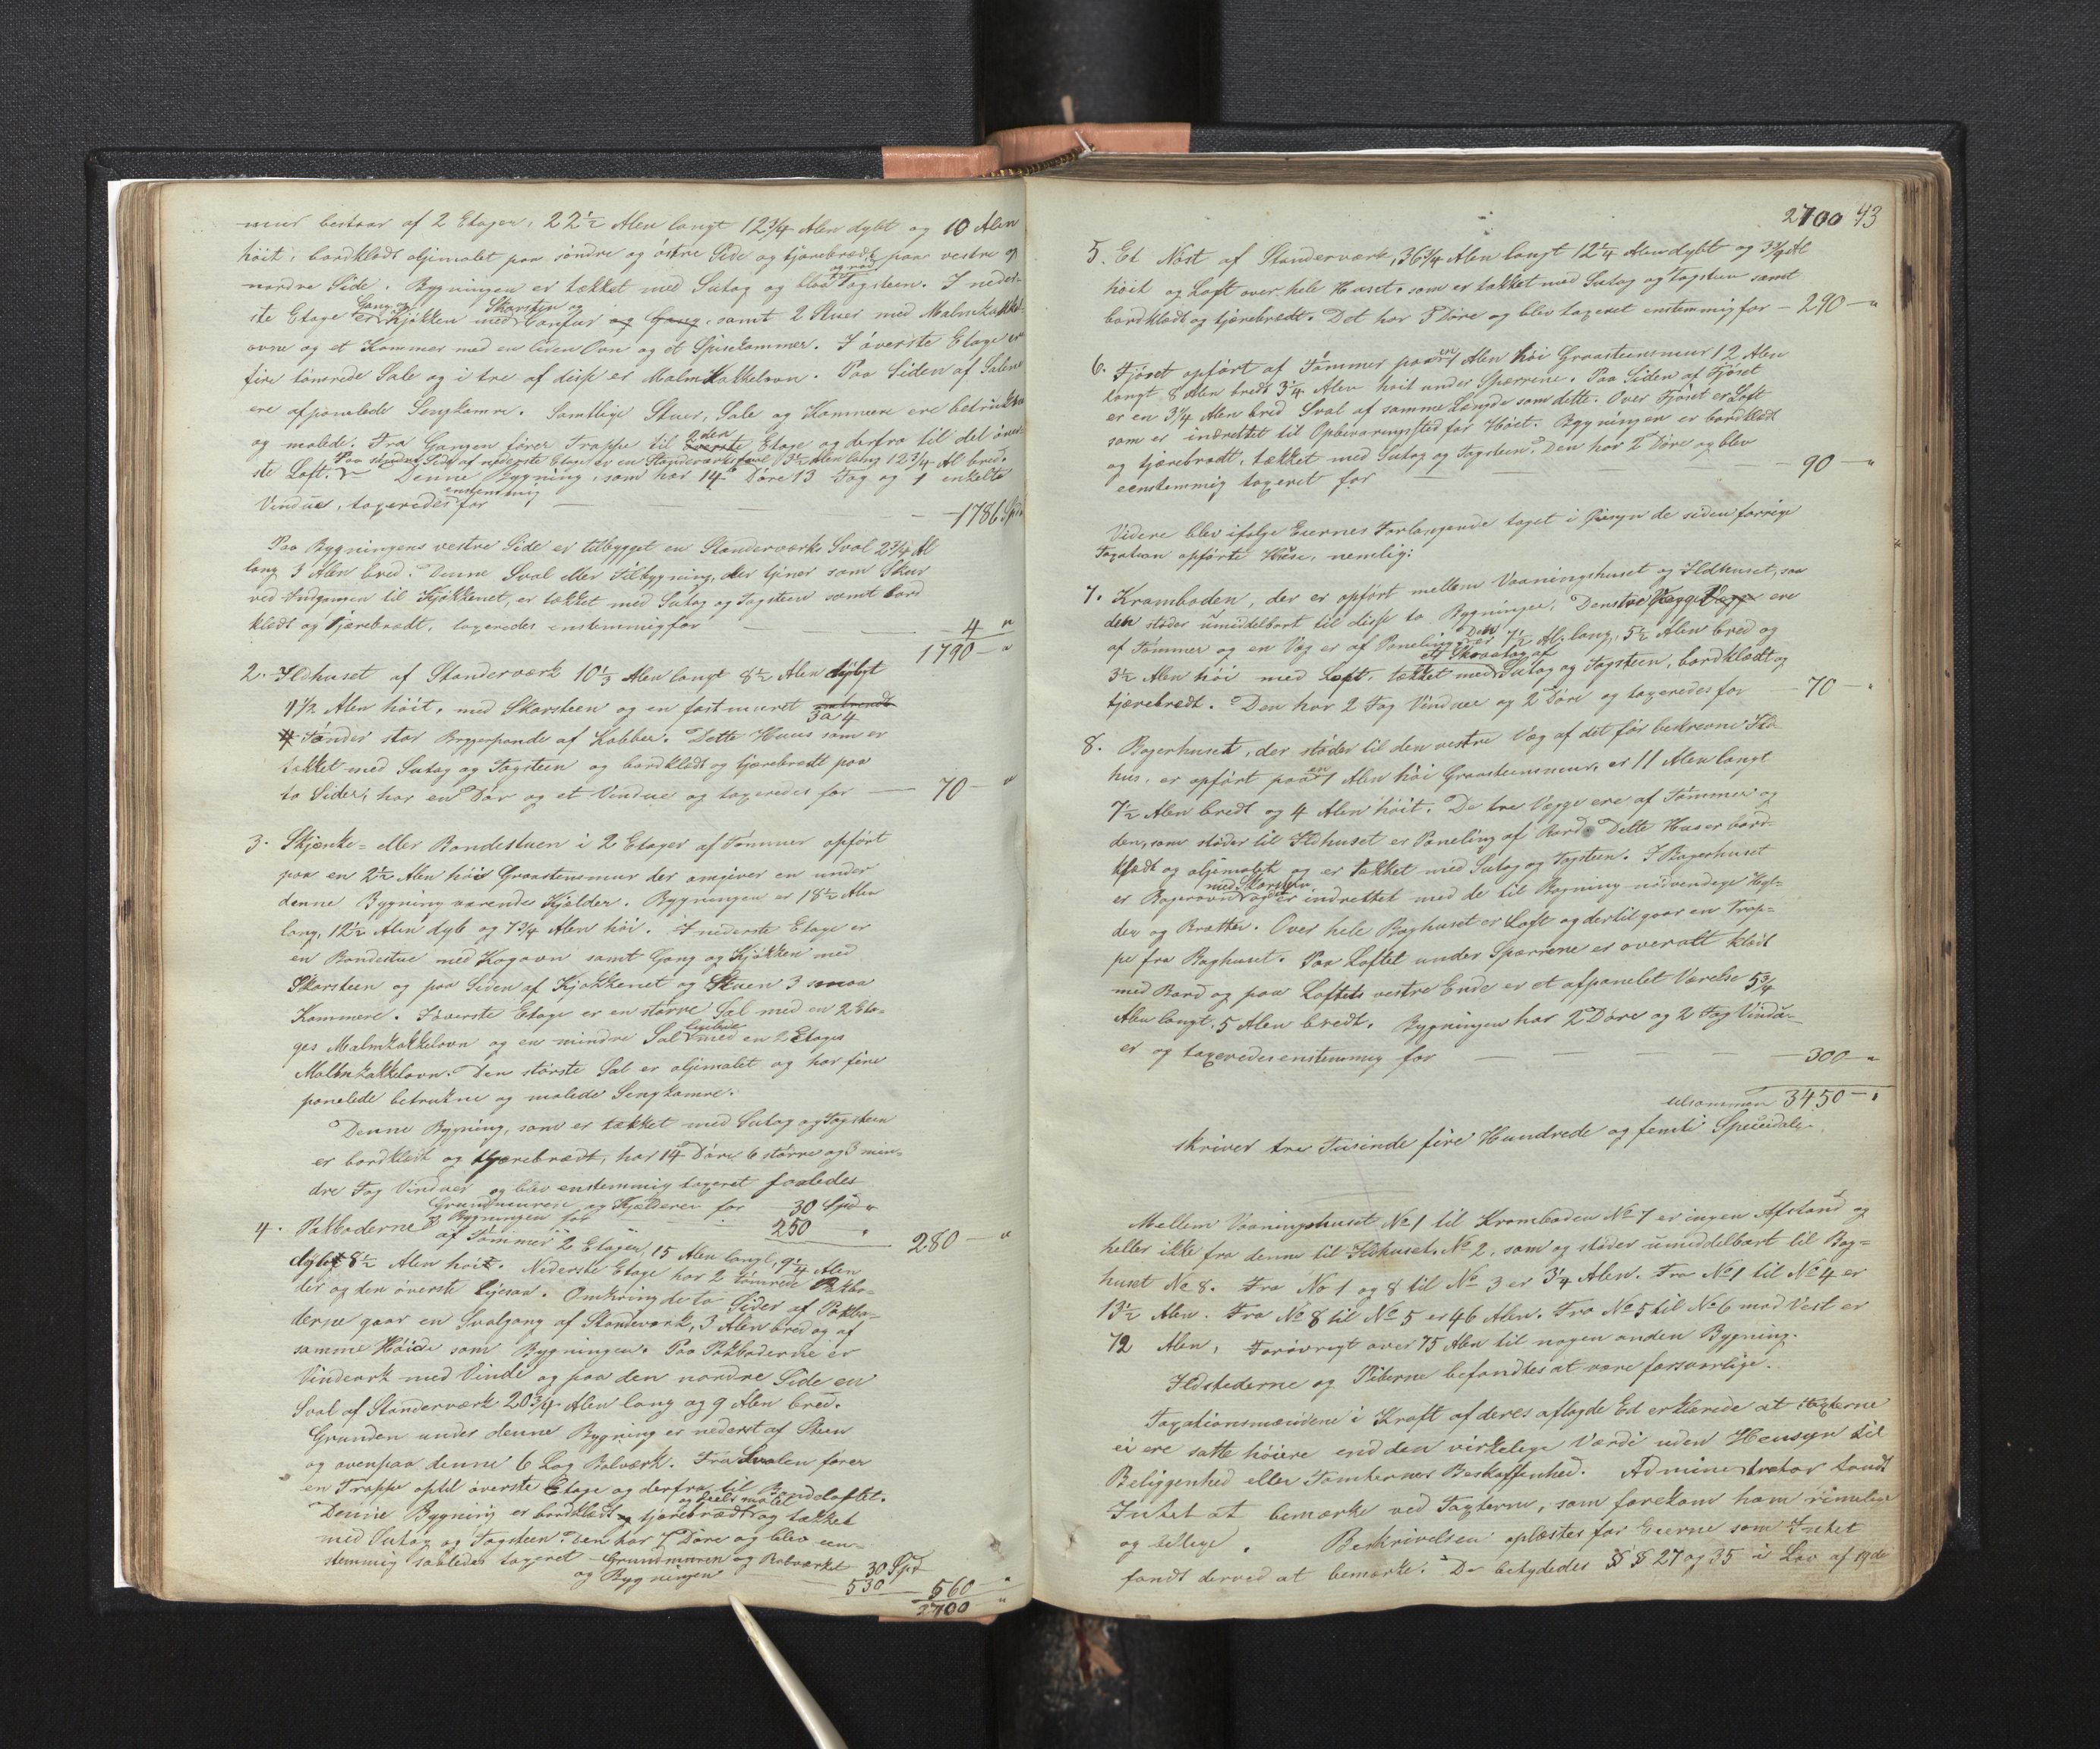 mur bestaar af 2 Etager, 22½ Alen langt 12¾ Alen dybt og 10 Alen
höit, bordklædt oljemalet paa söndre og östre Side og tjærebrædt paa vestre og
nordre Side. Bygningen er tækket med Sutag og blaa og röd Tagsteen. I neder-
ste Etage er Gang og Kjökken med Skorsten og Comfur og Gang, samt 2 Stuer med Malmkakkel-
ovne og et Kammer med en liden Ovn og et Spisekammer. I överste Etage er
fire tömrede Sale og i tre af disse er Malmkakkelovn. Paa Siden af Salene
ere afpanelede Sengkamre. Samtlige Stuer, Sale og Kammere ere betrukne
og malede. Fra Gangen förer Trappe til överste 2den Etage og derfra til det över-
ste Loft. Paa Siden af nederste Etage er en Standerværks 3½ Alen lang 12¾ Al bred.
Denne Bygning, som har 14 Döre 13 Fag og 1 enkelte
Vindue, taxeredes enstemmig for — 1786 Spd
Paa Bygningens vestre Side er tilbygget en Standerværks Sval 2¾ Al
lang 3 Alen bred. Denne Sval eller Tilbygning, der tjener som Skur
ved Indgangen til Kjökkenet, er tækket med Sutag og Tagsteen samt bord
klædt og tjærebrædt, taxeredes enstemmig for — 4 "
1790 — "
2. Ildhuset af Standerværk 10⅓ Alen langt 8½ Alen dybt
4½ Alen höit, med Skorsteen og en fast muret
3 a 4
Tönder stor Bryggerpande af Kobber. Dette Huus som er
tækket med Sutag og Tagsteen og bordklædt og tjærebrædt paa
to Sider, har en Dör og et Vindue og taxeredes for — 70 — "
3. Skjænke- eller Bondestuen i 2 Etager af Tömmer opfört
paa en 2½ Alen höi Graastensmur der omgiver en under
denne Bygning værende Kjælder. Bygningen er 18½ Alen
lang, 12½ Alen dyb og 7¾ Alen höi. I nederste Etage er
en Bondestue med Kogovn samt Gang og Kjökken med
Skorsteen og paa Siden af Kjökkenet og Stuen 3 smaa
Kammere. I överste Etage er en större Sal med en 2 Eta-
ges Malmkakkelovn og en mindre Sal ligeledes med en 2 Etages
Malmkakkelovn. Den störste Sal er oljemalet og har fire
panelede betrukne og malede Sengkamre.
Denne Bygning, som er tækket med Sutag og Tagsteen
er bordklædt og tjærebrædt, har 14 Döre 6 större og 3 min-
dre Fag Vinduer og blev enstemmig taxeret saaledes
Grundmuren og Kjælderen for 30 Spd "
og Bygningen for — 250 " 280 — "
4. Pakboderne af Tömmer 2 Etager, 15 Alen langt, 9¼ Alen
dybt 8½ Alen höit. Nederste Etage har 2 tömrede Pakbo-
der og den överste ligesaa. Omkring de to Sider af Pakbo-
derne gaar en Svalgang af Standerværk, 3 Alen bred og af
samme Höide som Bygningen. Paa Pakboderne er
Vindeark med Vinde og paa den nordre Side en
Sval af Standerværk 20¾ Alen lang og 9 Alen bred.
Grunden under denne Bygning er nederst af Steen
og ovenpaa denne 6 Lag Bolværk. Fra Svalen förer
en Trappe optil överste Etage og derfra til Bondeloftet.
Denne Bygning er bordklædt og tjærebrædt og deels malet og tækket
med Sutag og Tagsteen. Den har 7 Döre og blev een-
stemmig saaledes taxeret — Grundmuren og Bolværket 30 Spd
og Bygningen 530 — 560 — "
2700 "
2700 43
5. Et Nöst af Standerværk, 36¾ Alen langt 12¼ Alen dybt og 3¾ Al
höit og Loft over hele Huset, som er tækket med Sutag og Tagsteen samt
bordklædt og tjærebrædt. Det har 5 Döre og blev taxeret enstemmig for — 290 — "
6. Fjöset opfört af Tömmer paa en 1 Alen höi Graasteensmur 12 Alen
langt 8 Alen bredt 3¼ Alen höit under Spærrene. Paa Siden af Fjöset
er en 3¼ Alen bred Sval af samme Længde som dette. Over Fjöset er Loft
som er indrettet til Opbevaringssted for Höet. Bygningen er bordklædt
og tjærebrædt, tækket med Sutag og Tagsteen. Den har 2 Döre og blev
eenstemmig taxeret for — 90 — "
Videre blev ifölge Eiernes Forlangende taget i Öiesyn de siden forrige
Taxation opförte Huse, nemlig:
7. Kramboden, der er opfört mellem Vaaningshuset og Ildhuset, saa
den stöder umiddelbart til disse to Bygninger. Dens tre Vægge ere
af Tömmer og en Væg er af Paneling. Den er 7½ Al. lang, 5½ Alen bred og
3½ Alen höi med Loft, tækket med et Skraatag af Sutag og Tagsteen, bordklædt og
tjærebrædt. Den har 2 Fag Vinduer og 2 Döre og taxeredes for — 70 — "
8. Bagerhuset, der stöder til den vestre Væg af det för beskrevne Ild-
hus, er opfört paa en 1 Alen höi Graasteensmur, er 11 Alen langt
7½ Alen bredt og 4 Alen höit. De tre Vægge ere af Tömmer og
den, som stöder til Ildhuset er Paneling af Bord. Dette Hus er bord-
klædt og oljemalet og er tækket med Sutag og Tagsteen. I Bagerhuset
er Bagerovn med Skorsten og er indrettet med de til Bagning nödvendige Hyl-
der og Brætter. Over hele Baghuset er Loft og dertil gaar en Trap-
pe fra Baghuset. Paa Loftet under Spærrene er overalt klædt
med Bord og paa Loftets vestre Ende er et afpanelet Værelse 5¾
Alen langt, 5 Alen bredt. Bygningen har 2 Döre og 2 Fag Vindu-
er og taxeredes enstemmig for — 300 — "
tilsammen 3450 — "
skriver tre Tusinde fire Hundrede og femti Speciedaler.
Mellem Vaaningshuset No 1 til Kramboden No 7 er ingen Afstand og
heller ikke fra denne til Ildhuset No 2, som og stöder umiddelbart til Bag-
huset No 8. Fra No 1 og 8 til No 3 er 3¼ Alen. Fra No 1 til No 4 er
13½ Alen. Fra No 8 til No 5 er 46 Alen. Fra No 5 til No 6 mod Vest er
72 Alen, Forövrigt over 75 Alen til nogen anden Bygning.
Ildstederne og Piberne befandtes at være forsvarlige.
Taxationsmændene i Kraft af deres aflagde Ed erklærede at Taxterne
ei ere satte höiere end den virkelige Værdi uden Hensyn til
Beliggenhed eller Tomternes Beskaffenhed. Administrator fandt
Intet at bemærke ved Taxterne, som forekom ham rimelige
og billige. Beskrivelsen oplæstes for Eierne som Intet
fandt derved at bemærke. De betydedes §§ 27 og 35 i Lov af 19de